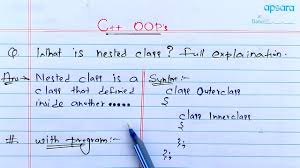 C++ OOP's
apsara
Date:
Q. What is nested class? full explaination.
Ans:- Nested class is a
class that defined
inside another.....
# with program:-
Syntax:-
class Outerclass
{
class Innerclass
{
};
};